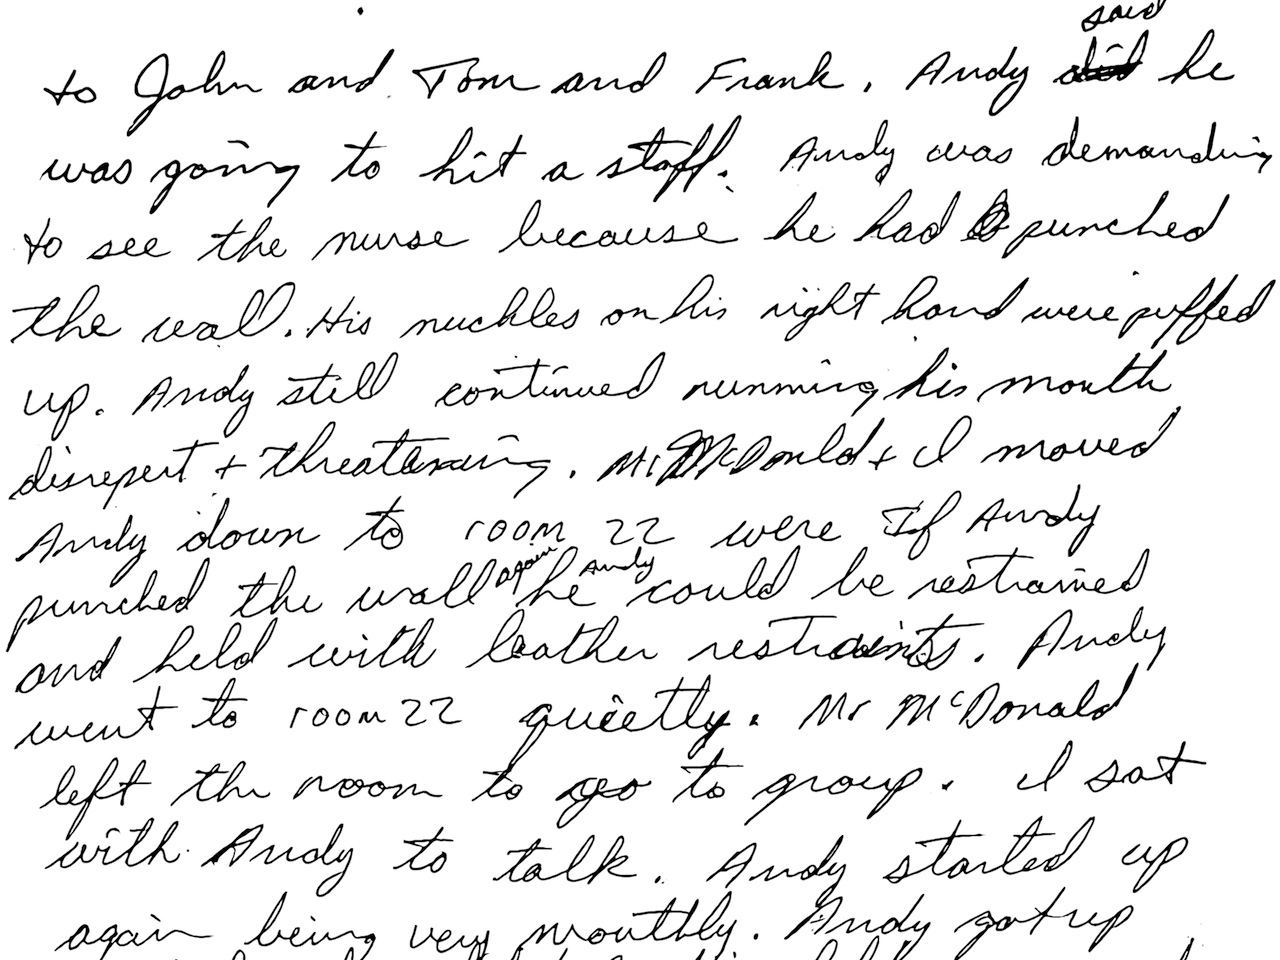 to John and Tom and Frank. Andy said he
was going to hit a staff. Andy was demanding
to see the nurse because he had punched
the wall. His nuckles on his right hand were puffed
up. Andy still continued running his mouth
disrepert + threatening. Mr. McDonald + I moved
Andy down to room 22 were If Andy
punched the wall again he Andy could be restrained
and held with leather restraints. Andy
went to room 22 quietly. Mr McDonald
left the room to go to group. I sat
with Andy to talk. Andy started up
again being very mouthly. Andy got up